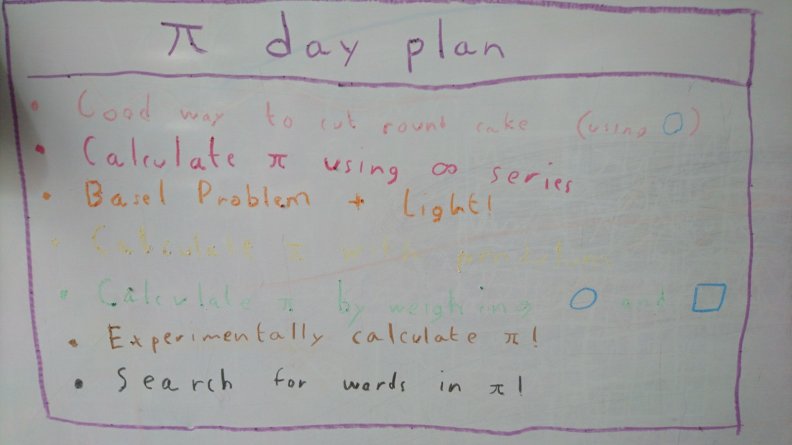 π day plan
• Good way to cut round cake (using ○)
• Calculate π using ∞ series
• Basel Problem + Light!
• Calculate π with
• Calculate π by weighing ○ and □
• Experimentally calculate π!
• Search for words in π!